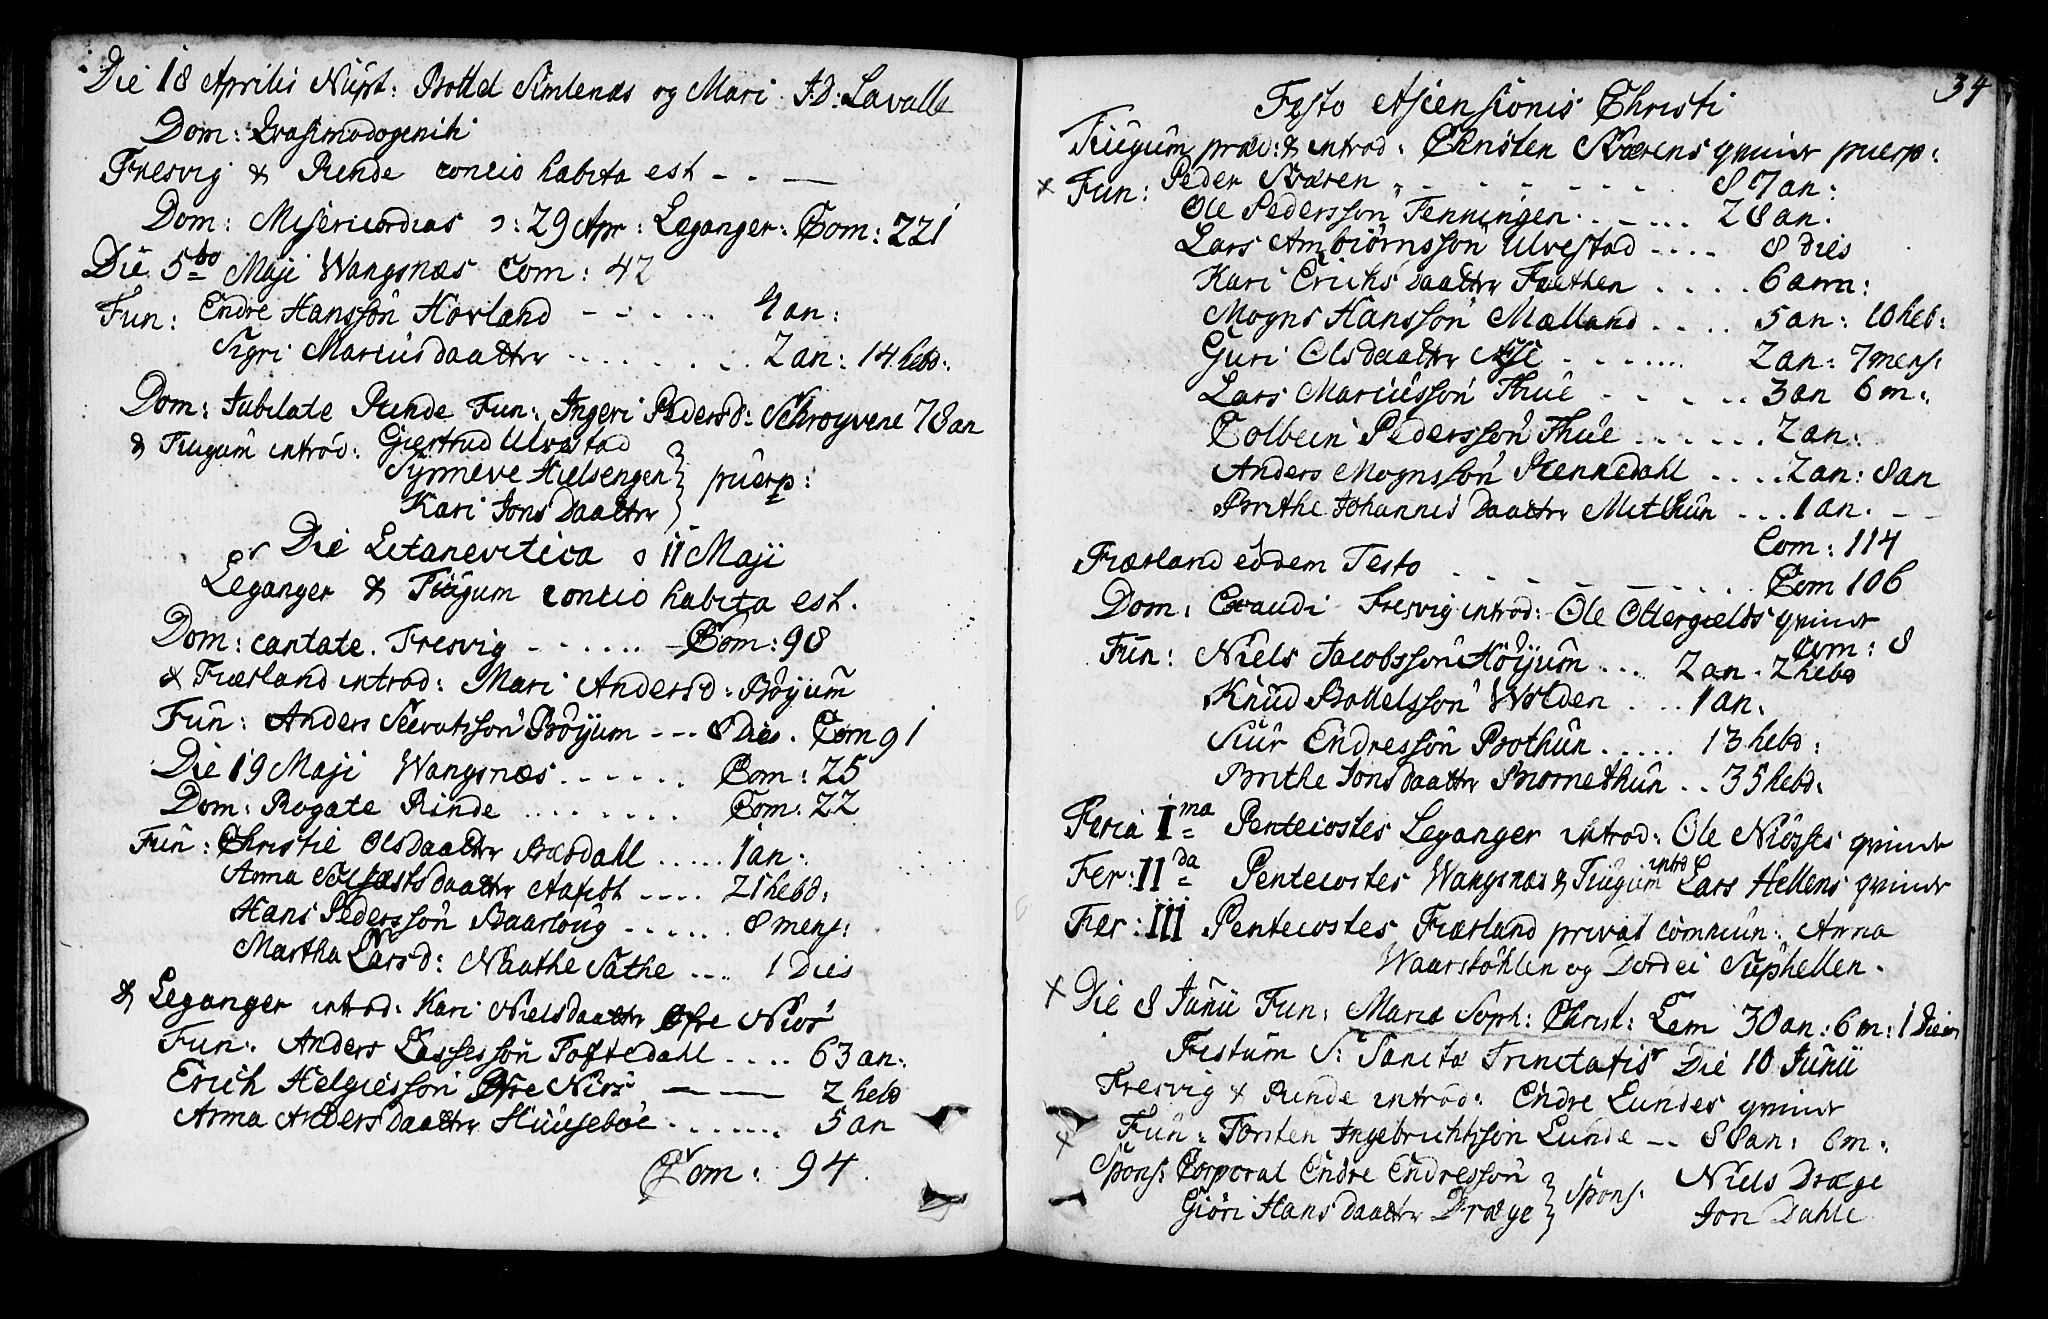 Die 18 Aprilis Nupt: Bottel Simlenæs og Mari J.D: Lavalle
Dom: Qvasimodogeniti
Fresvig & Rinde concio habita est - . —
Dom: Misericordias ɔ: 29 Apr: Leganger: Com: 221
Die 5to Maji Wangsnæs Com: 42
Fun: Endre Hansson Hovland - - - - - . . 4 an:
Sigri Mariusdaatter . . . . . . . . 2 an: 14 hebd:
Dom: Jubilate Rinde Fun: Ingeri Pedersd: Schrøyvene 78 an
& Tiugum introd: Giertrud Ulvestad
Synneve Hielsengen } puerp:
Kari Jons Daatter
Die Litanevtica ɔ 11 Maji
Leganger & Tiugum concio habita est.
Dom: cantate. Fresvig - - - . . . - Com: 98
& Fiærland introd: Mari Andersd: Bøyum
Fun: Anders Siurdsson Bøyum - - - 8 Dies. Com 91
Die 19 Maji Wangsnæs . - - - - - . Com: 25
Dom: Rogate Rinde . . . . . . . . Com: 22
Fun: Christie Olsdaatter Bærdahl . . . . . 1 an:
Anna daatter . . . . 21 hebd:
Hans Pedersson Baarloug . . . . . . 8 mens:
Martha Larsd: Naathe Sathe . . . . 1 Dies
& Leganger introd: Kari Nielsdaatter Øfre Niøs
Fun: Anders Lassesson Toftedahl . . . . 63 an:
Erich Helgiesson Øfre Niøs — — — 2 hebd
Anna Anders daatter Huusebøe . . . . . . . 5 an
Com: 94.
34
Festo Ascensionis Christi
Tiugum præd: & introd: Christen Kværens qvinde puerp:
x Fun: Peder Kværen , - - - - - - . . 87 an:
Ole Pedersson Fenningen . . - . . . 28 an.
Lars Ambiørnsson Ulvestad . . . . 8 dies
Kari Erichs daatter Faethen . . . . . 6 ann:
Mogns Hansson Mælland . . . . 5 an: 10 heb:
Guri Olsdaatter . . . . . . . 2 an: 7 mens:
Lars Mariusson Thue - - - . . . 3 an 6 m:
Colbein Pedersson Thue . . . . . . 2 an:
Anders Mognsson Rennedahl . . . . . 2 an: 8 an
Brithe Johannis Daatter Methun . . . 1 an. - -
Com: 114
Fiærland eodem Festo . - - - - - - . . . Com 106
Dom: Exaudi Fresvig introd: Ole Ottergields qvinde
Com: 8
Fun: Niels Jacobsson Høyum . . . 2 an. 2 hebd
Knud Bottelsson Wolden . . . . 1 an.
Siur Endresson Bothun . . . . . 13 hebd:
Brithe Jons daatter Biørnethun . . 35 hebd:
Feria Ima Pentecostes Leganger introd: Ole Niøsses qvinde
Fer: IIda Pentecostes Wangsnæs & Tiugum introd Lars Hellens qvinde
Fær: III Pentecostes Fiærland privat commun: Anna
Waarstøhlen og Dordei Suphellen.
x Die 8 Junii Fun: Maria Soph: Christ: Lem 30 an: 6 m: 1 Diem
Festum S: Sancta Trinitatis Die 10 Junii
Fresvig & Rinde introd: Endre Lundes qvinde
x Fun: Torsten Ingebrichtsson Lunde — 88 an: 6 m:
Spons: Corporal Endre Endresson } Spons: Niels Dræge
Giøri Hans daatter Dræge } Jon Dahle